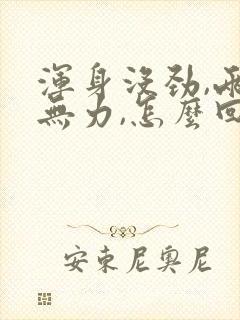 渾身沒勁,兩
無力,怎麼回
安東尼奧尼